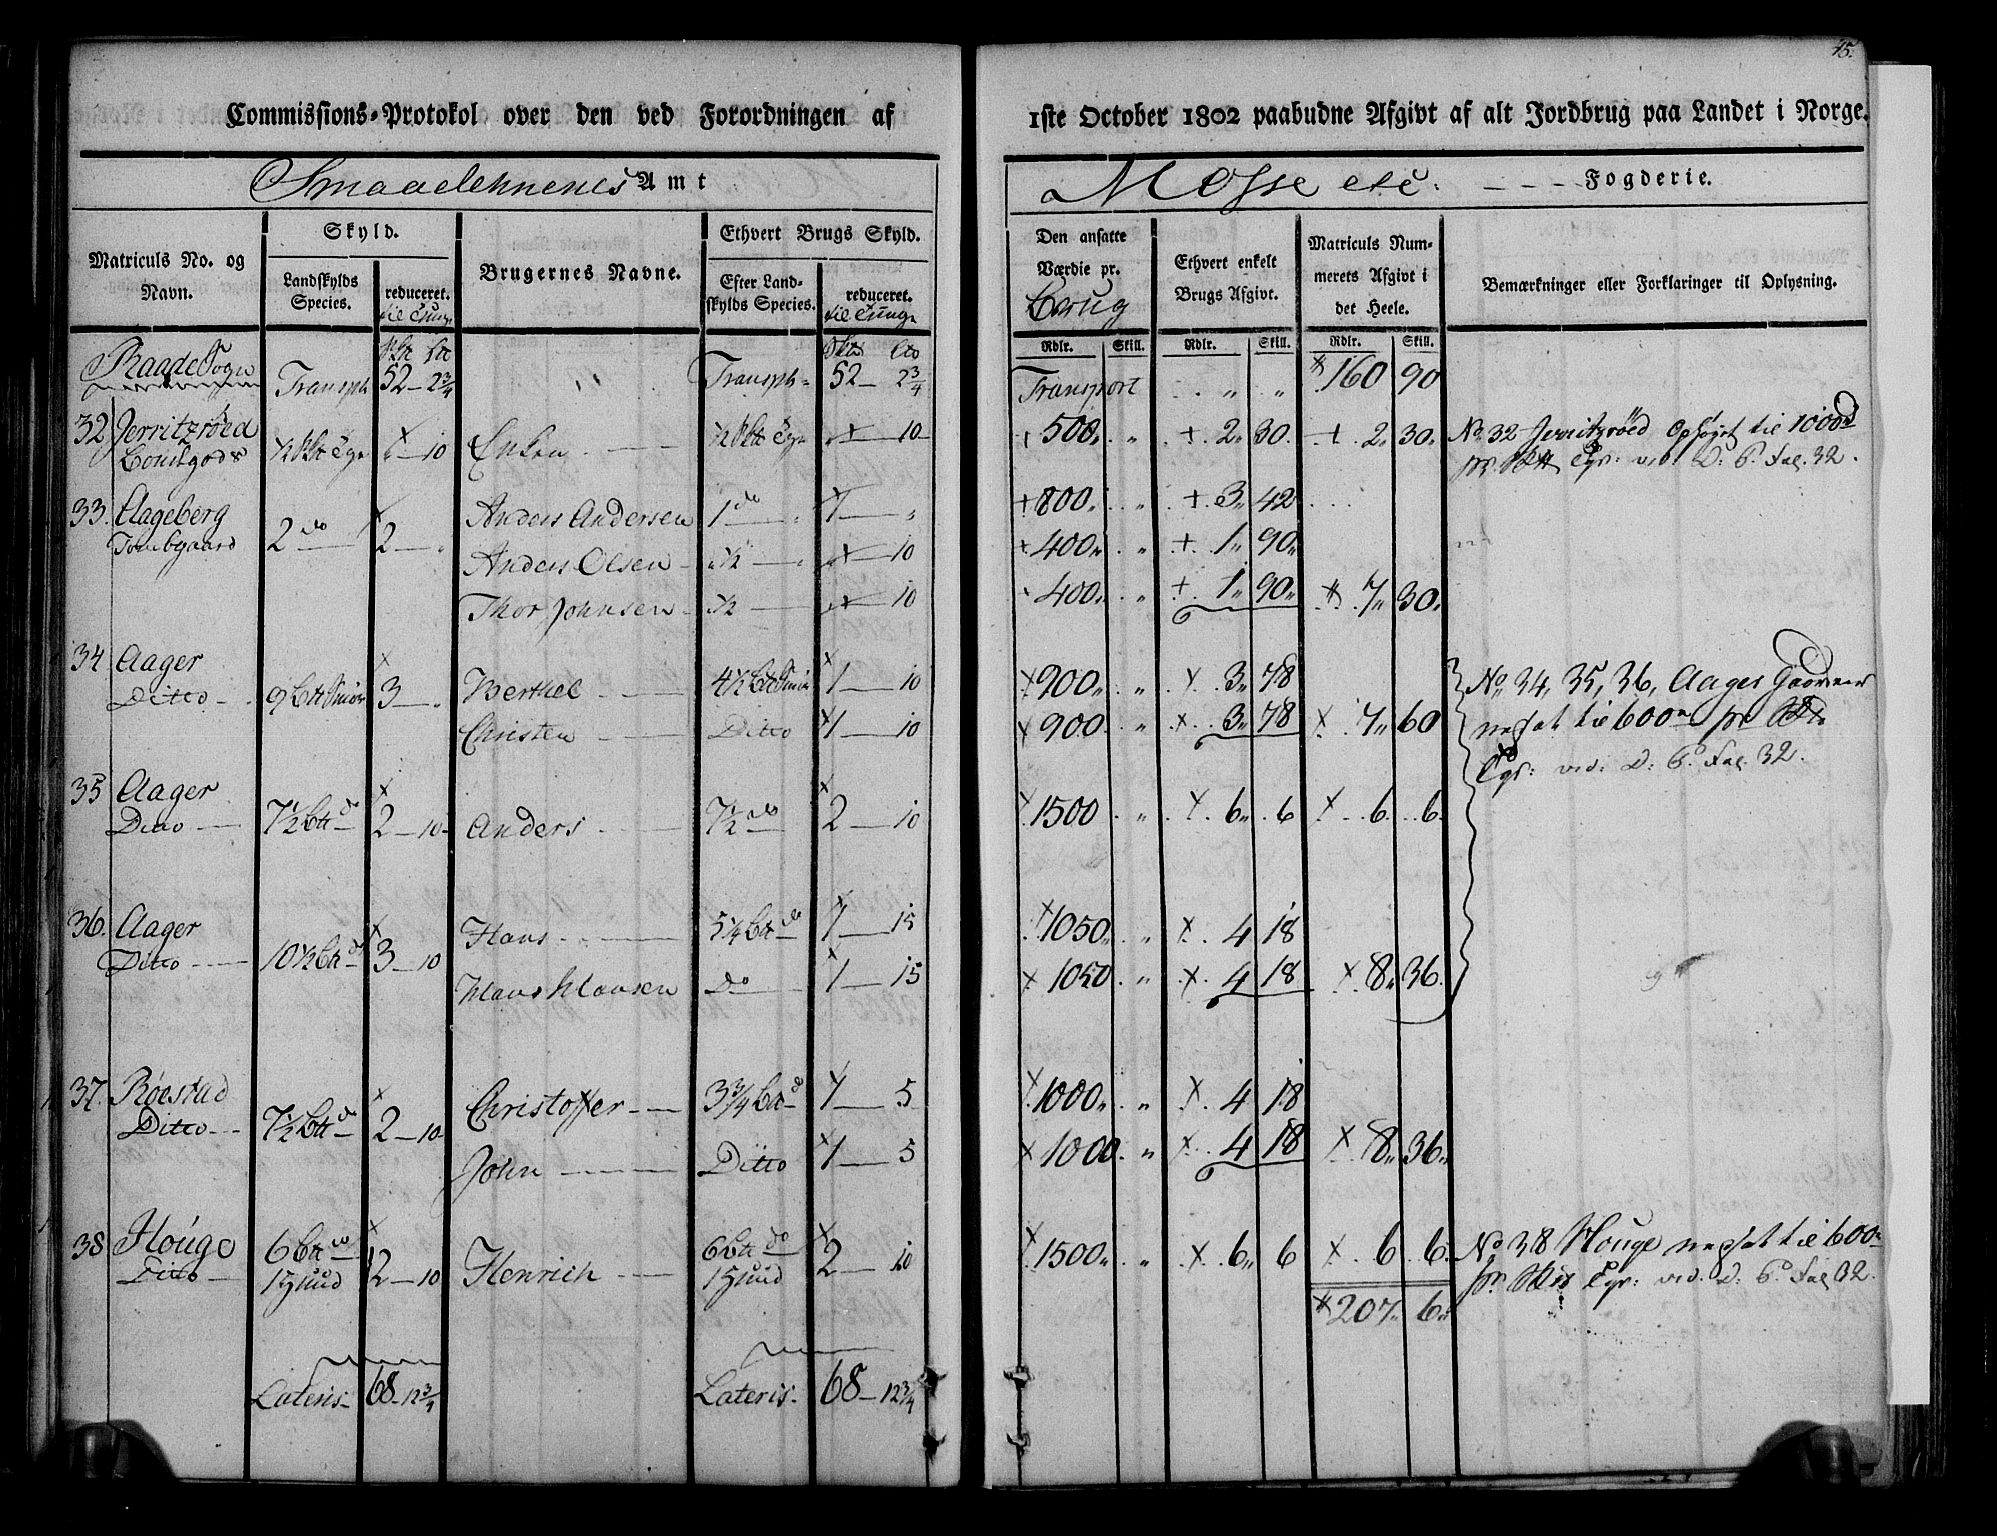 15.
Commissions-Protokol over den ved Forordningen af 1ste October 1802 paabudne Afgivt af alt Jordbrug paa Landet i Norge.
Smaalehnenes Amt
Mosse etc. Fogderie.
Matriculs No. og Navn.
Skyld.
Landskylds Species.
reduceret. til Tunge
Brugernes Navne.
Ethvert Brugs Skyld.
Efter Landskylds Species.
reduceret. til Tunge
Den ansatte Værdie pr. Brug
Ethvert enkelt Brugs Afgivt.
Matriculs Nummerets Afgivt i det Heele.
Bemærkninger eller Forklaringer til Oplysning.
Rdlr. Skill. Rdlr. Skill. Rdlr. Skill.
Raade Sogn Transpt 52 – 2 3/4 Transpt 52 – 2 3/4 Transport 160 90
32 Jerritzröed ½ 10 Enken ½ 10 500 2 30 2 30 No 32 Jerritzröed Ophöyet til 1000
Fol. 32.
33. Aageberg 2 do 2 Anders Andersen 1 do 1 800 3 42
Tombgaard Anders Olsen ½ 10 400 1 90
Thor Johnsen ½ 10 400 1 90 7 30
34 Aager Ditto 9 3 Berthel 4½ 1 10 900 3 78 No 34, 35, 36, Aager Gaardene
Christen Ditto 1 10 900 3 78 7 60 nedsat til 600 pr
Fol. 32.
35 Aager Ditto 7½ 2 – 10 Anders 7½ do 2 10 1500 6 6 6 6
36. Aager Ditto 10½ 3 – 10 Hans 5¼ 1 15 1050 4 18
Hans Hansen Do 1 15 1050 4 18 8 36
37. Röestad Ditto 7½ 2 – 10 Christoffer 3¾ 1 5 1000 4 18
John Ditto 1 5 1000 4 18 8 36
38 Houge Ditto 6 2 – 10 Henrich 6 2 10 1500 6 6 6 6 No 38 Houge nedsat til 600
207 6
Fol 32.
Lateris 68 – 12 3/4 Lateris 68 – 12 3/4